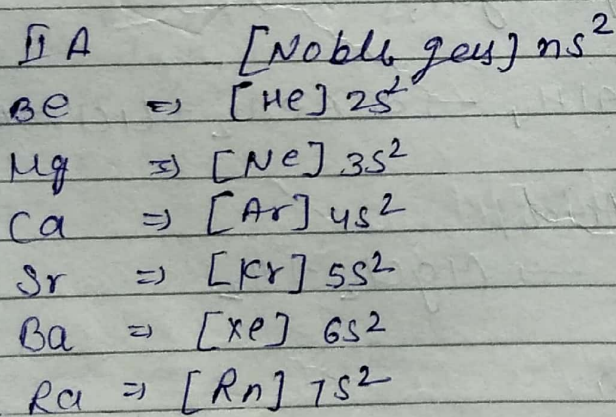 II A [Noble gas] ns²
Be => [He] 2s²
Mg => [Ne] 3s²
Ca => [Ar] 4s²
Sr => [Kr] 5s²
Ba => [Xe] 6s²
Ra => [Rn] 7s²